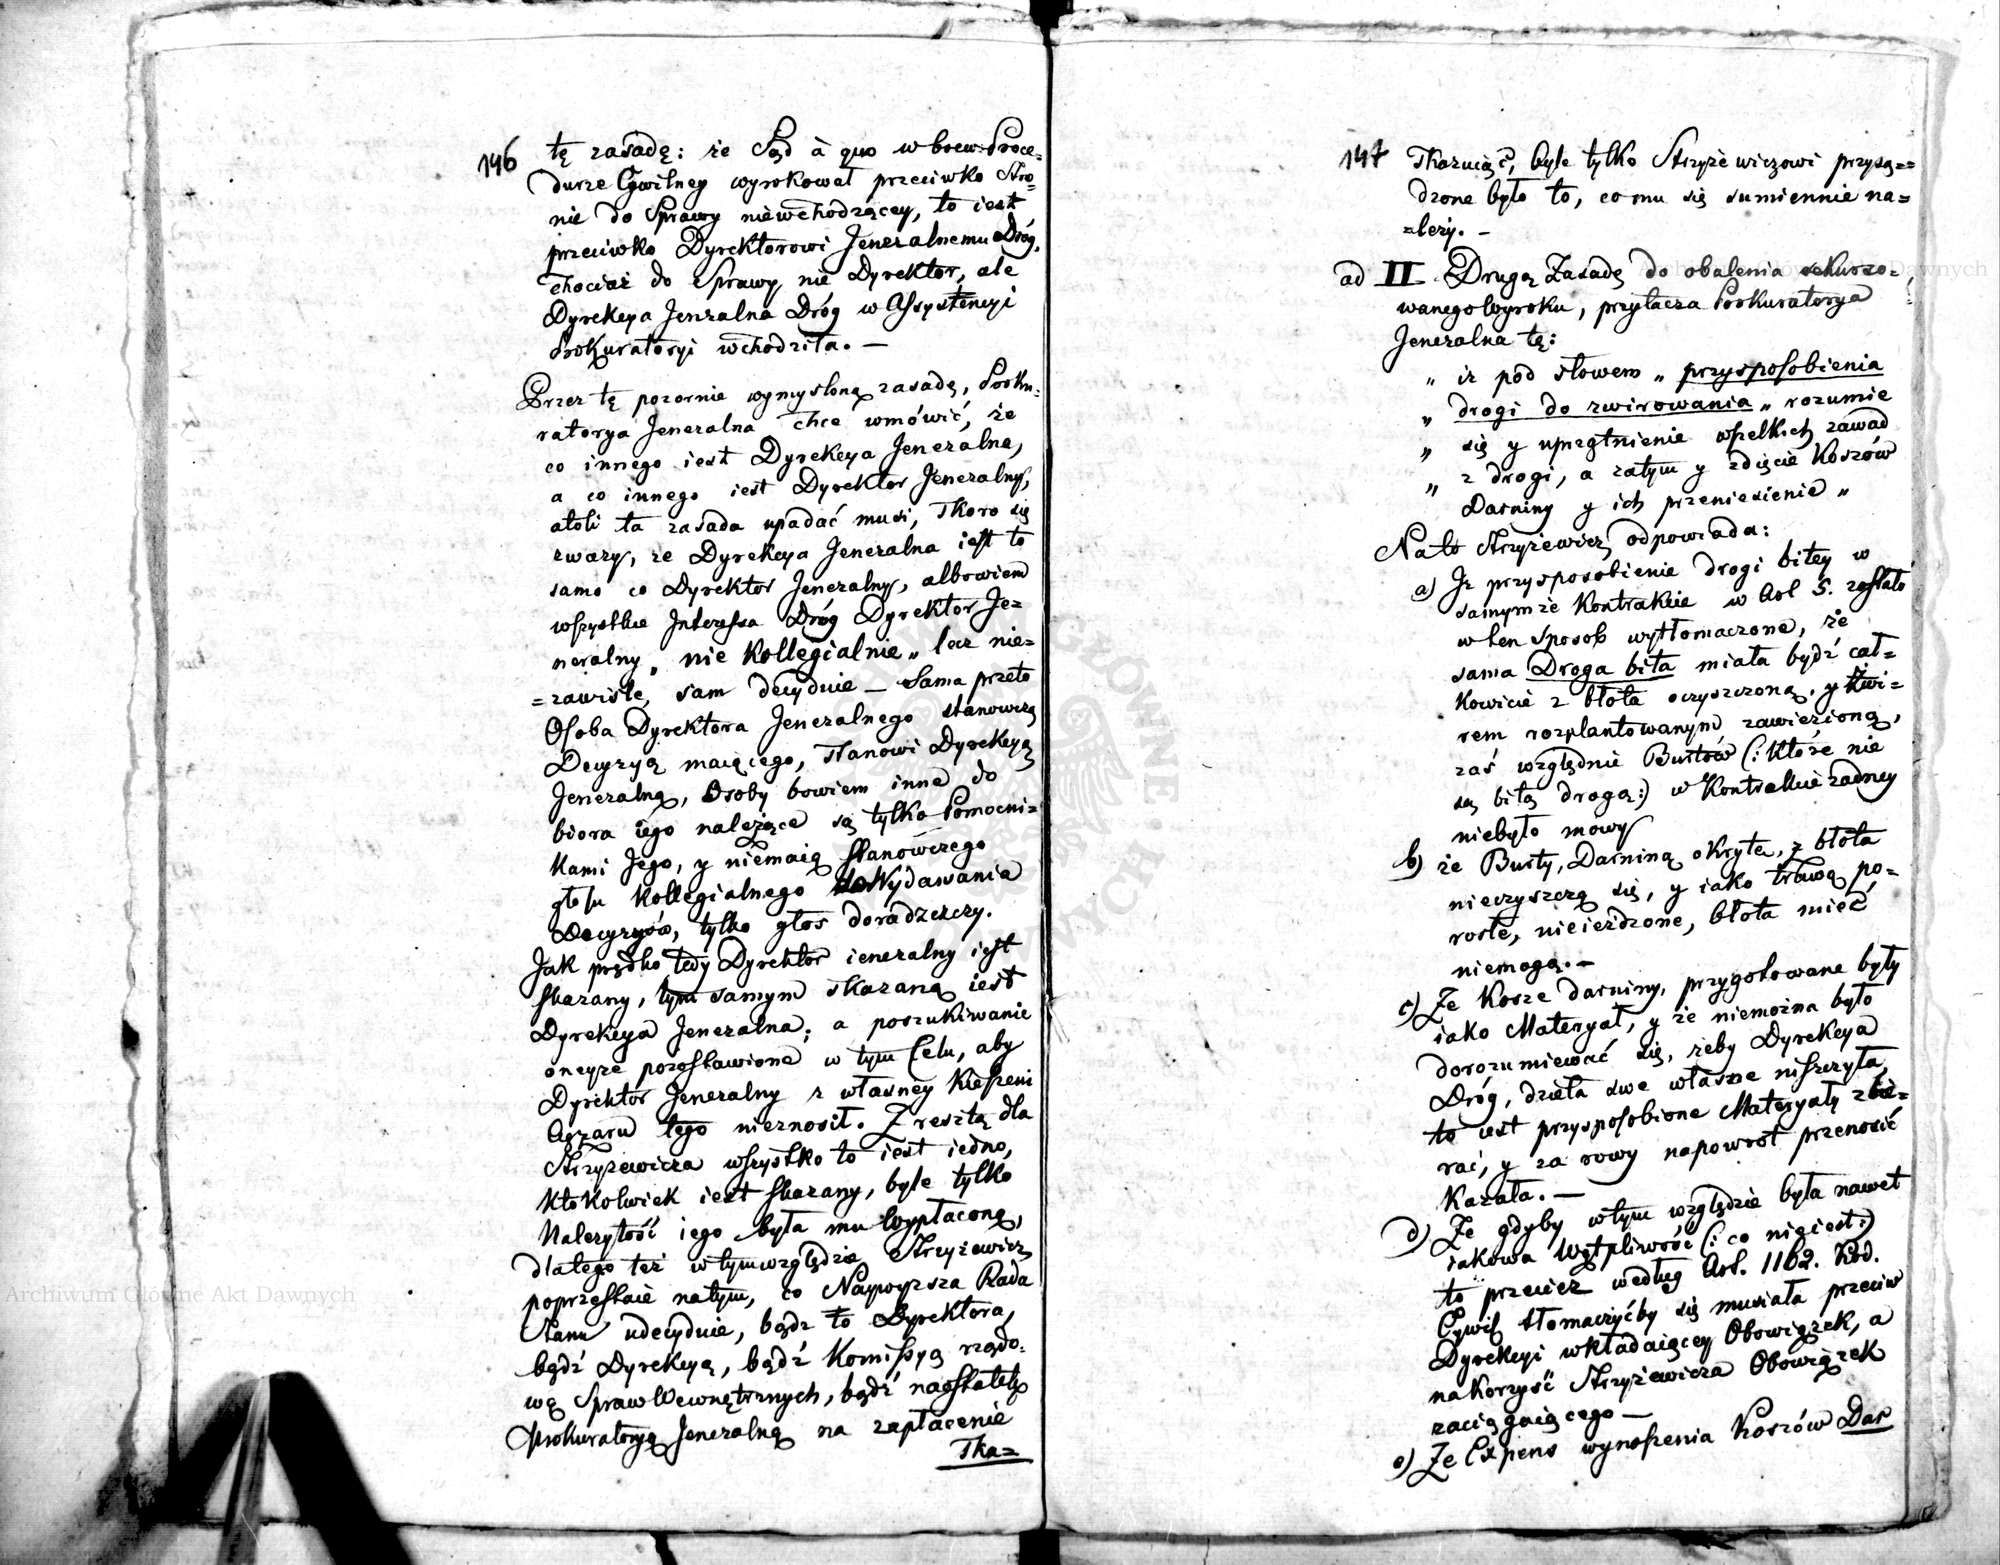 146
tę zasadę: że Sąd à quo wbrew Proce=
durze Cywilney wyrokował przeciwko Stro=
nie do Sprawy niewchodzącey, to iest
przeciwko Dyrektorowi Jeneralnemu Dróg,
chociaż do Sprawy nie Dyrektor, ale
Dyrekcya Jeneralna Dróg w Assystencyi
Prokuratoryi wchodziła. —
Przez tę pozornie wymyśloną zasadę, Proku=
ratorya Jeneralna chce wmówić, że
co innego iest Dyrekcya Jeneralna,
a co innego iest Dyrektor Jeneralny,
atoli ta zasada upadać musi, skoro się
zważy, że Dyrekcya Jeneralna iest to
samo co Dyrektor Jeneralny, albowiem
wszystkie Interessa Dróg Dyrektor Je=
neralny „ nie kollegialnie „ lecz nie=
=zawisle, sam decyduie — Sama przeto
Osoba Dyrektora Jeneralnego stanowczą
Decyzyą maiącego, stanowi Dyrekcyą
Jeneralną, Osoby bowiem inne do
biora iego należące są tylko Pomocni=
kami Jego, y niemaią stanowczego
głosu kollegialnego do Wydawania
Decyzyów, tylko głos doradzczy.
Jak prędko tedy Dyrektor ieneralny iest
skazany, tym samym skazaną iest
Dyrekcya Jeneralna; a poszukiwanie
oneyże pozostawione w tym Celu, aby
Dyrektor Jeneralny z własney Kieszeni
Ciężaru tego nieznosił. Zresztą dla
Strzyżewicza wszystko to iest iedno,
ktokolwiek iest skazany, byle tylko
Należytość iego była mu wypłaconą,
dlatego też w tym względzie Strzyżewicz
poprzestaie na tym, co Naywyższa Rada
Stanu udecyduie, bądź to Dyrektora,
bądź Dyrekcyą, bądź Komissyą rządo=
wą Spraw Wewnętrznych, bądź naostatek
Prokuratoryą Jeneralną na zapłacenie
Ska=
147
skazuiąc, byle tylko Strzyżewiczowi przysą==
dzone było to, co mu się sumiennie na=
=leży. —
ad II. Drugą Zasadę do obalenia rekurso=
wanego Wyroku, przytacza Prokuratorya
Jeneralna tę:
„ iż pod słowem „ przysposobienia
„ drogi do zwirowania „ rozumie
„ się y uprzątnienie wszelkich zawad
„ z drogi, a zatym y zdięcie Koszów
Darniny y ich przeniesienie „
Na to Strzyżewicz odpowiada:
a) Iż przysposobienie drogi bitey w
samymże Kontrakcie w Art 5. zostało
w ten sposob wytłomaczone, że
sama Droga bita miała bydź cał=
kowicie z błota oczyszczoną, y Żwi=
rem rozplantowanym zawiezioną,
zaś względnie Burtów (: które nie
są bitą drogą:) w Kontrakcie żadney
niebyło mowy
b) że Burty, Darniną okryte, z błota
nieczyszczą się, y iako trawą po=
rosłe, nieieżdzone, błota mieć
niemogą. —
c) Że Kosze darniny, przygotowane były
iako Materyał, y że niemożna było
dorozumiewać się, żeby Dyrekcya
Dróg, dzieła swe własne niszczyła,
to iest przysposobione Materyały zbie=
rać, y za rowy napowrot przenosić
kazała. —
d) Że gdyby w tym względzie była nawet
iakowa wątpliwość (: co nieiest:)
to przecież według Art. 1162. Kod.
Cywil tłomaczyćby się musiała przeciw
Dyrekcyi wkładaiącey Obowiązek, a
na korzyść Strzyżewicza Obowiązek
zaciągaiącego —
e) Że Expens wynoszenia Koszów Dar